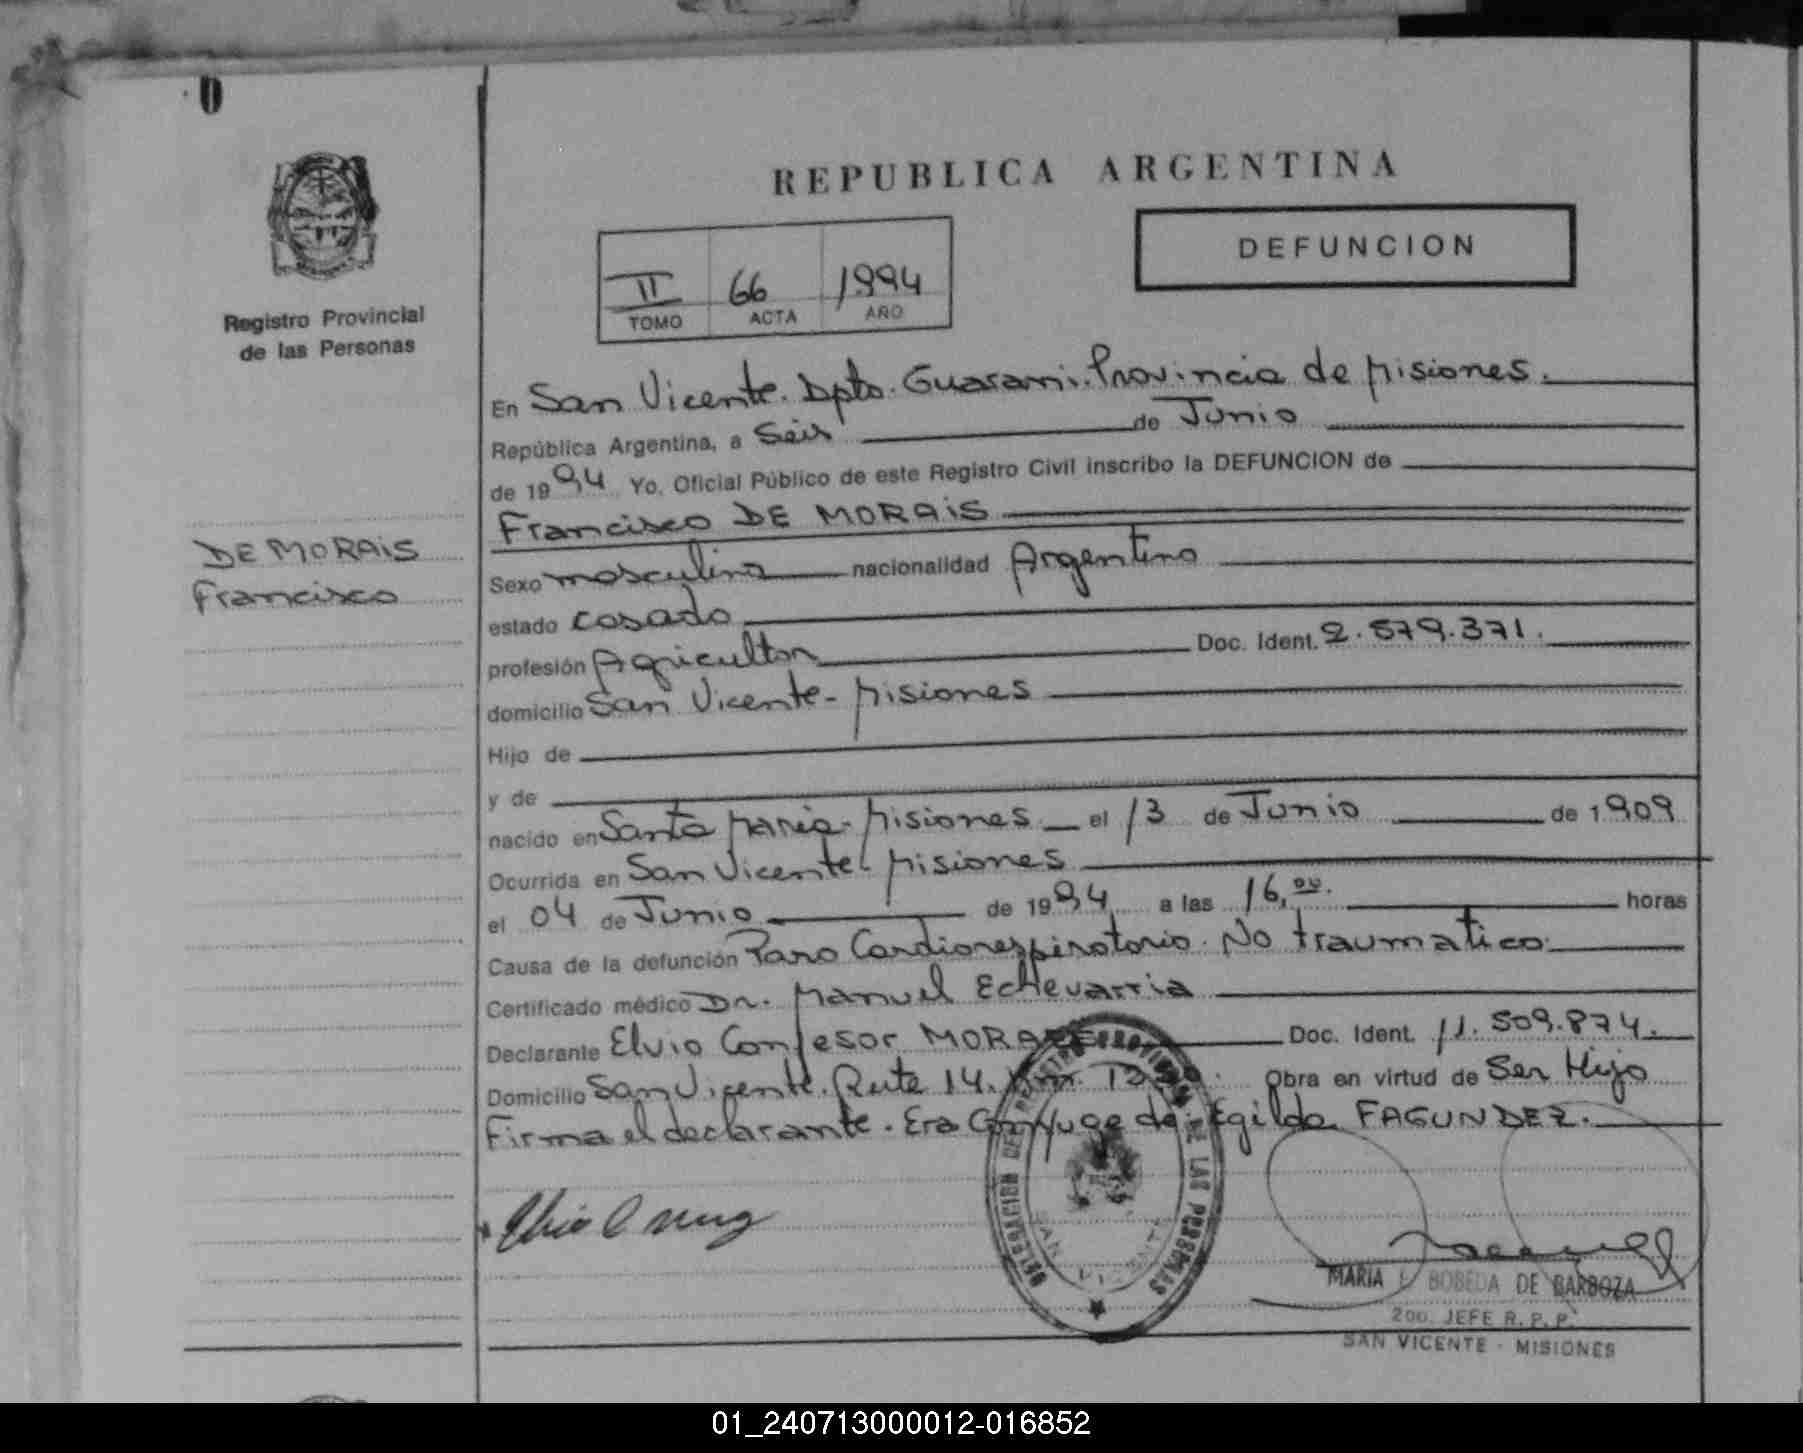 0
REPUBLICA ARGENTINA
DEFUNCION
II 66 1994
TOMO ACTA AÑO
Registro Provincial
de las Personas
En San Vicente. Dpto. Guarani. Provincia de Misiones.
República Argentina, a Seis de Junio
de 1994 Yo, Oficial Público de este Registro Civil inscribo la DEFUNCION de
Francisco DE MORAiS
DE MORAiS
Francisco
Sexo masculino nacionalidad Argentino
estado casado
profesión Agricultor Doc. Ident. 2.579.371.
domicilio San Vicente - Misiones
Hijo de
y de
nacido en Santa Maria - Misiones el 13 de Junio de 1909
Ocurrida en San Vicente - Misiones
el 04 de Junio de 1994 a las 16,00. horas
Causa de la defunción Paro Cardiorespiratorio. No traumatico.
Certificado médico Dr. Manuel Echevarria
Declarante Elvio Confesor Doc. Ident. 11.509.874.
Domicilio San Vicente. Rute 14. Km. Obra en virtud de Ser Hijo
Firma el declarante. Era Conyuge de Egilda FAGUNDEZ.
DELEGACION DEL REGISTRO PROVINCIAL DE LAS PERSONAS
SAN VICENTE
MARIA BOBEDA DE BARBOZA
2do. JEFE R. P. P.
SAN VICENTE - MISIONES
01_240713000012-016852